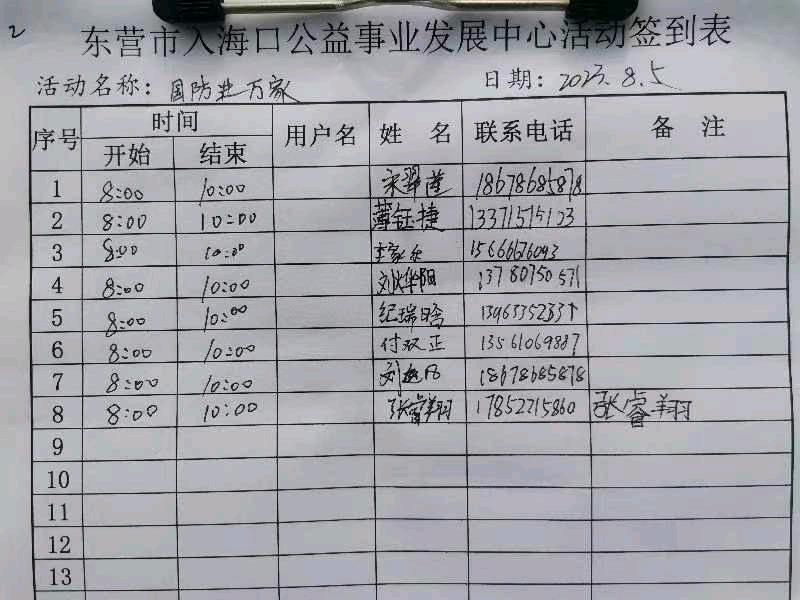 2
东营市入海口公益事业发展中心活动签到表
活动名称：国防进万家 日期：2023.8.5
序号 时间 用户名 姓名 联系电话 备注
开始 结束
1 8:00 10:00 宋翠莲 18678685878
2 8:00 10:00 薄钰捷 13371515103
3 8:00 10:00 李家乐 15666676093
4 8:00 10:00 刘烨阳 13780750571
5 8:00 10:00 纪瑞晗
6 8:00 10:00 付双正 13561069887
7 8:00 10:00 刘 18678685878
8 8:00 10:00 张睿翔 17852215860 张睿翔
9
10
11
12
13